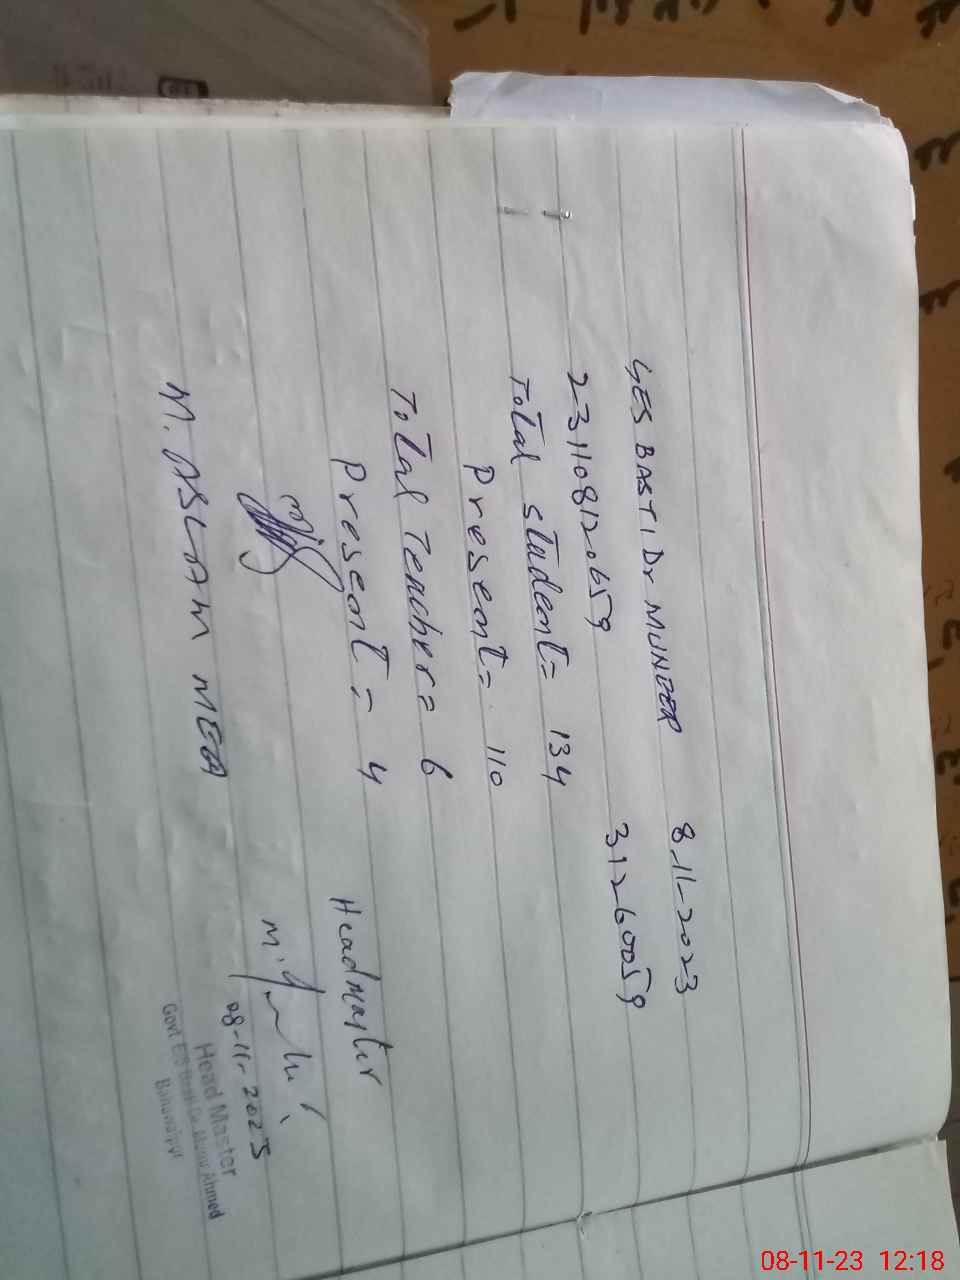 GES BASTI Dr MUNEER 8-11-2023
231108120659 31260059
Total student = 134
Present = 110
Total Teacher = 6
Present = 4
Headmaster
M. ASLAM MEO
08-11-2023
Head Master
Govt E/S Basti Dr. Munir Ahmed
Bahawalpur
08-11-23 12:18